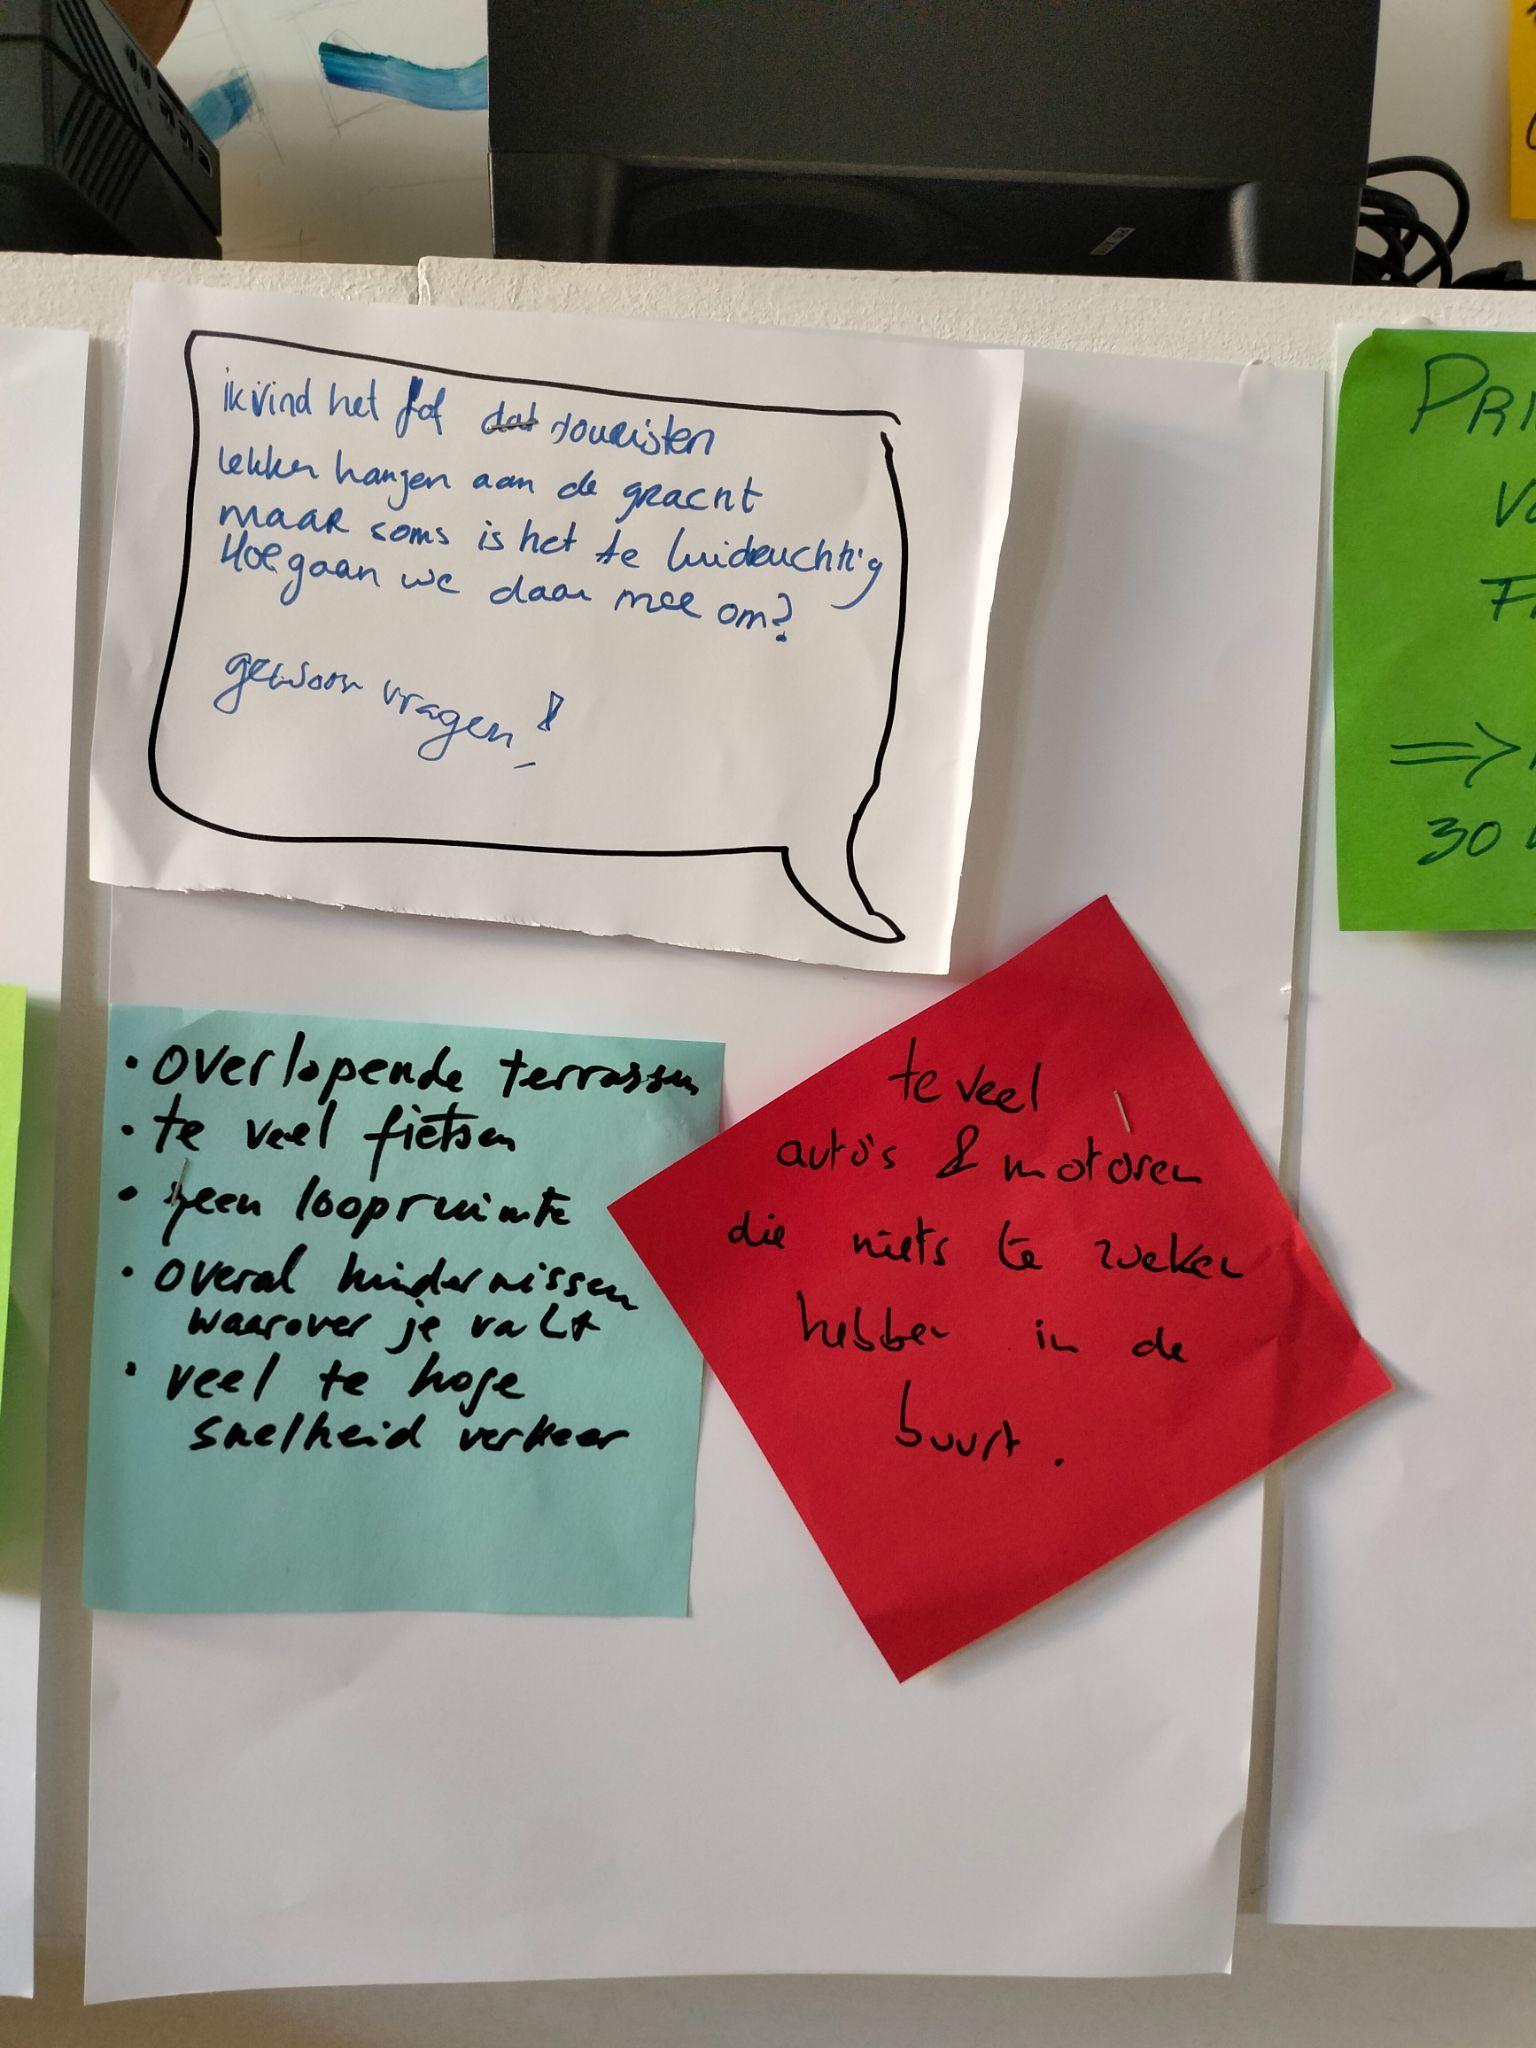 ik vind het tof dat touristen
lekker hangen aan de gracht
maar soms is het te luidruchtig
Hoe gaan we daar mee om?
gewoon vragen!
• overlopende terrassen
• te veel fietsen
• geen loopruimte
• overal hindernissen
waarover je valt
• veel te hoge
snelheid verkeer
te veel
auto's & motoren
die niets te zoeken
hebben in de
buurt.
PRI
Vo
⇒
30